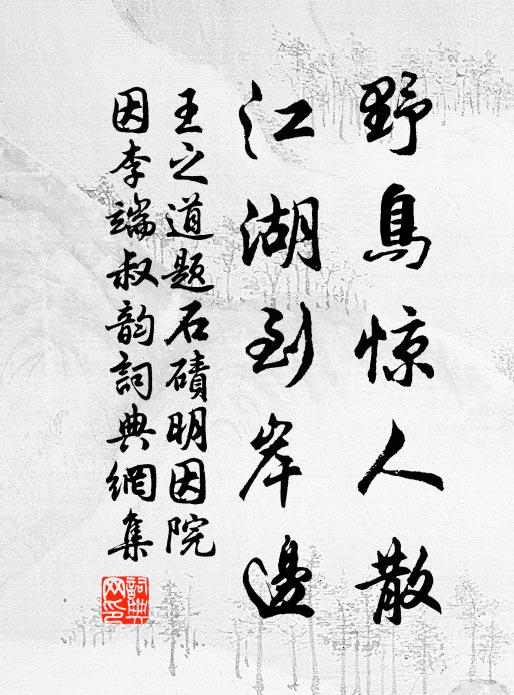 野鳥惊人散
江湖到岸邊
王之道题石磧明因院
因李端叔韵詞典網集